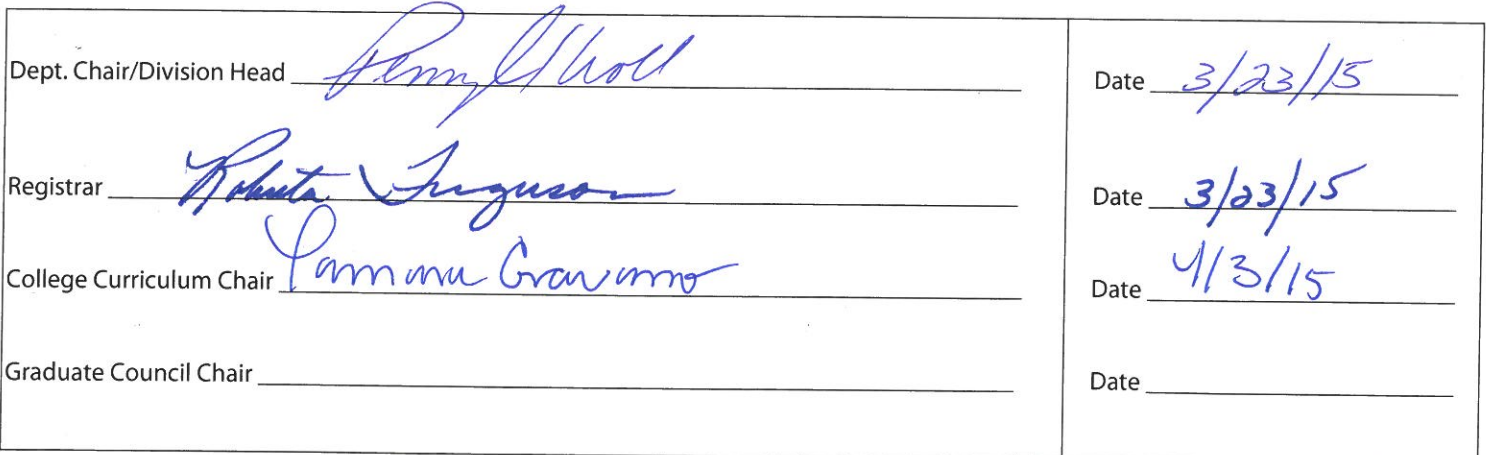 Dept. Chair/Division Head Penny Date 3/23/15
Registrar Roberta Ferguson Date 3/23/15
College Curriculum Chair Date 4/3/15
Graduate Council Chair Date